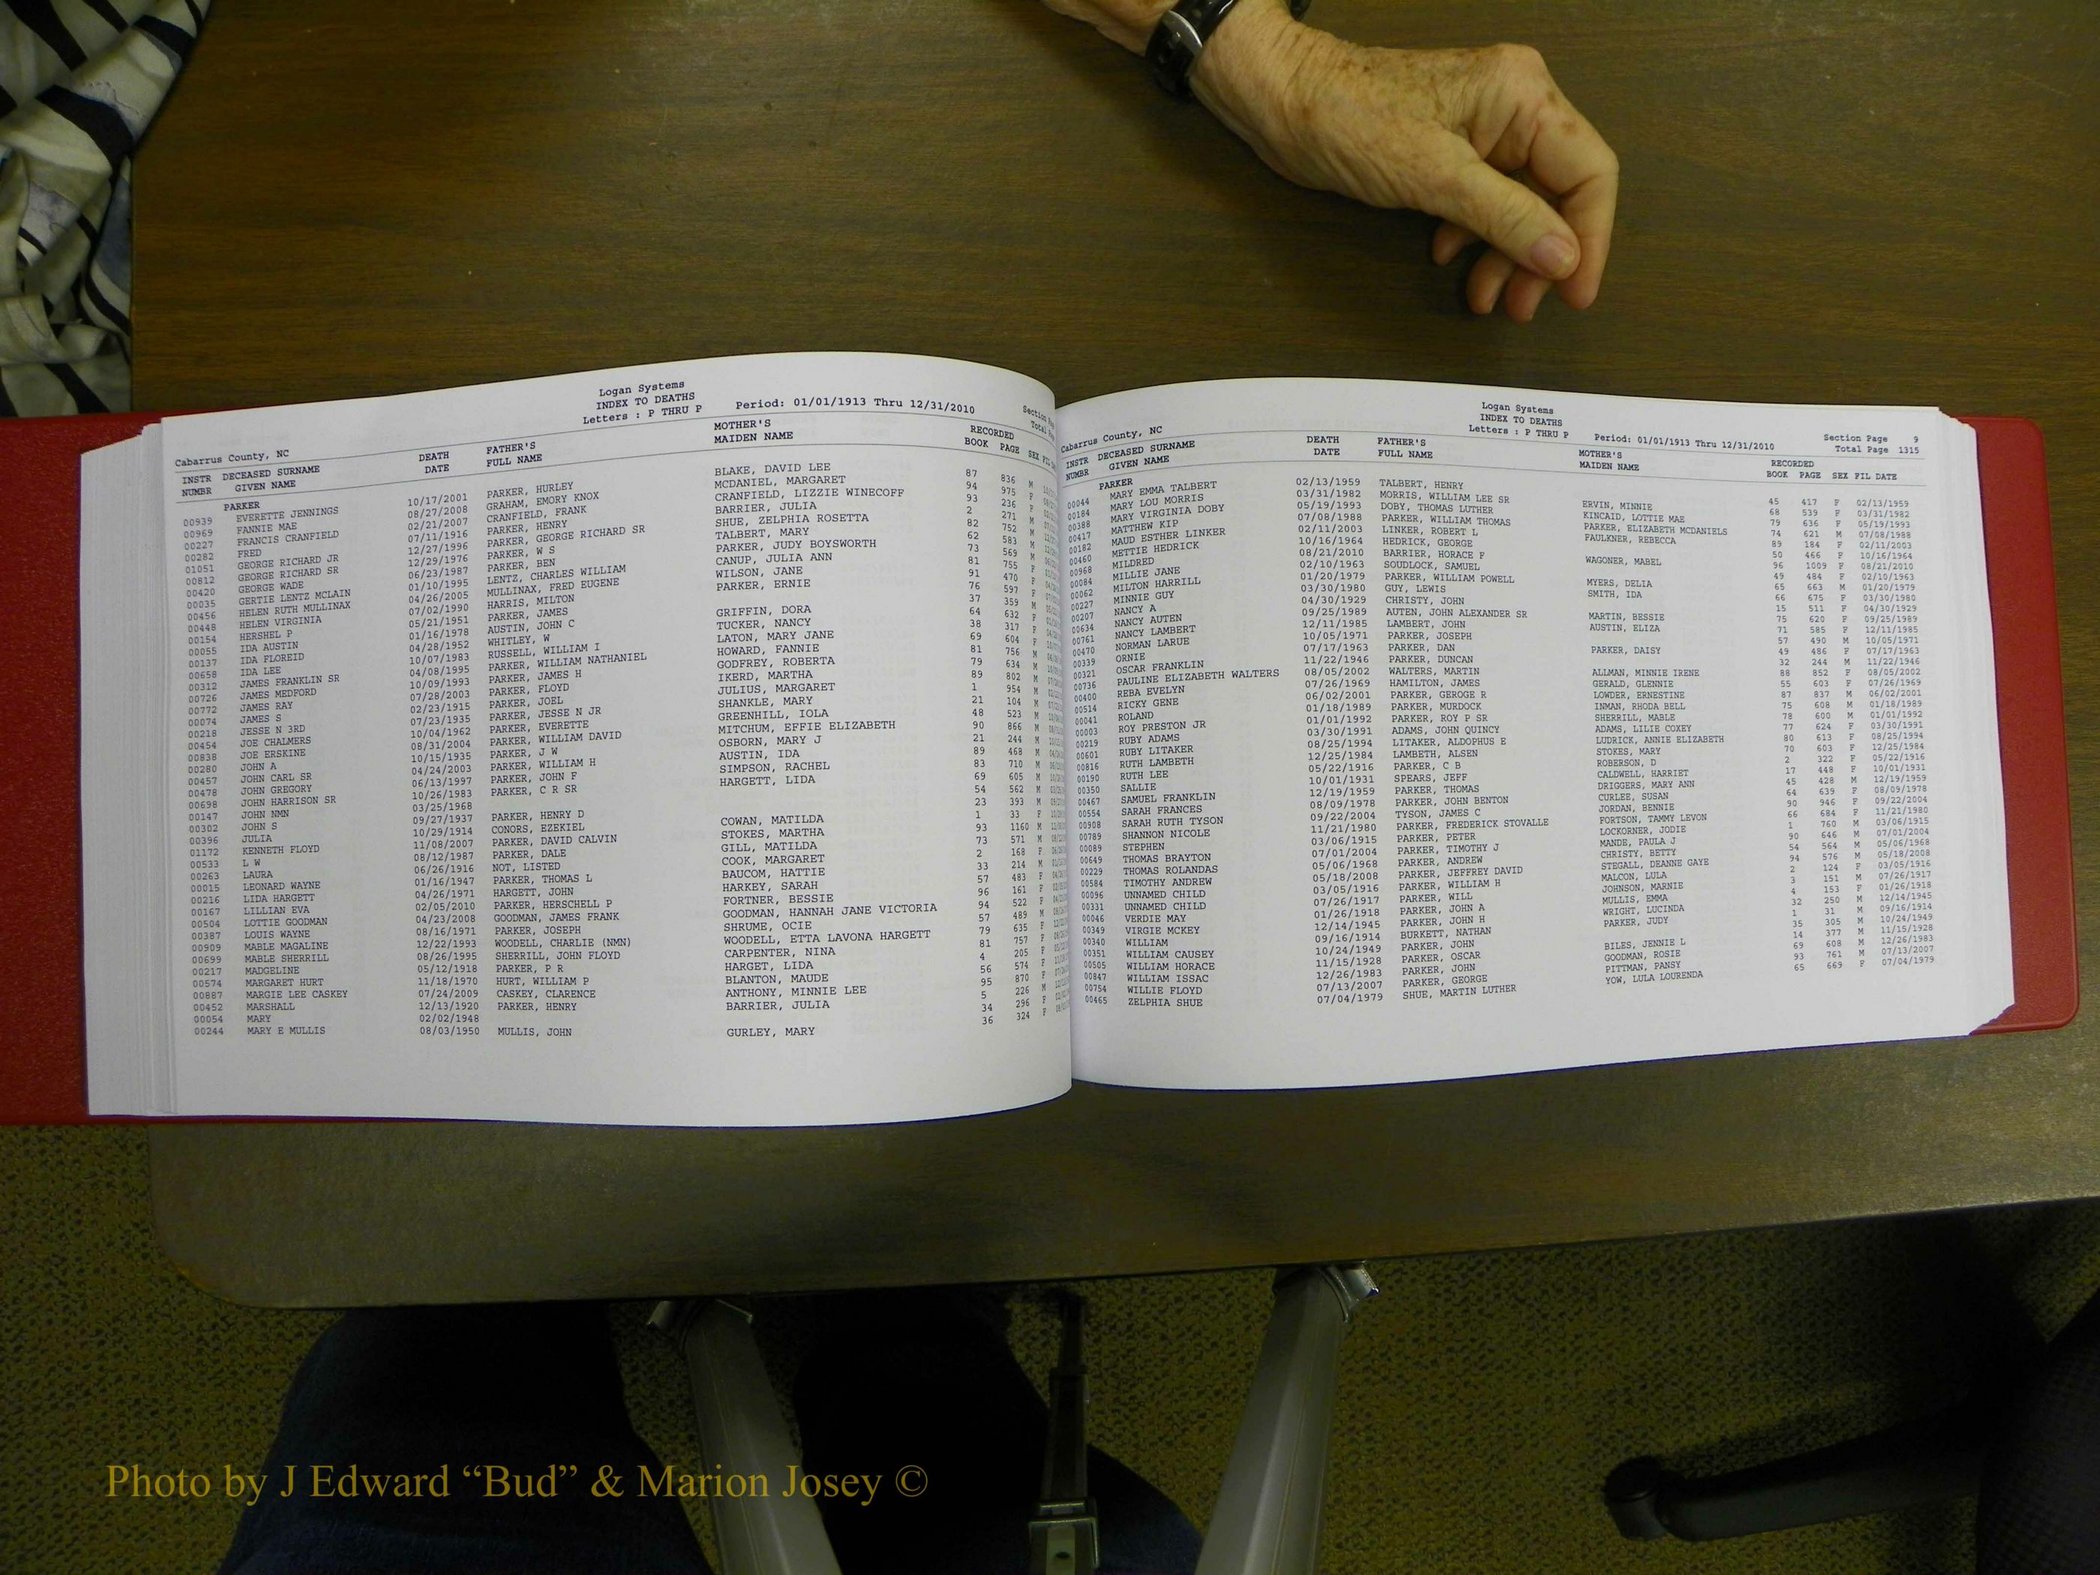 Logan Systems
INDEX TO DEATHS
Letters : P THRU P Period: 01/01/1913 Thru 12/31/2010
Cabarrus County, NC
INSTR DECEASED SURNAME DEATH FATHER'S MOTHER'S RECORDED
NUMBR GIVEN NAME DATE FULL NAME MAIDEN NAME BOOK PAGE SEX
PARKER
00939 EVERETTE JENNINGS 10/17/2001 PARKER, HURLEY BLAKE, DAVID LEE 87 836 M
00969 FANNIE MAE 08/27/2008 GRAHAM, EMORY KNOX MCDANIEL, MARGARET 94 975 F
00227 FRANCIS CRANFIELD 02/21/2007 CRANFIELD, FRANK CRANFIELD, LIZZIE WINECOFF 93 236 F
00282 FRED 07/11/1916 PARKER, HENRY BARRIER, JULIA 2 271 M
01051 GEORGE RICHARD JR 12/27/1996 PARKER, GEORGE RICHARD SR SHUE, ZELPHIA ROSETTA 82 752 M
00812 GEORGE RICHARD SR 12/29/1976 PARKER, W S TALBERT, MARY 62 583 M
00420 GEORGE WADE 06/23/1987 PARKER, BEN PARKER, JUDY BOYSWORTH 73 569 M
00035 GERTIE LENTZ MCLAIN 01/10/1995 LENTZ, CHARLES WILLIAM CANUP, JULIA ANN 81 755 F
00456 HELEN RUTH MULLINAX 04/26/2005 MULLINAX, FRED EUGENE WILSON, JANE 91 470 F
00448 HELEN VIRGINIA 07/02/1990 HARRIS, MILTON PARKER, ERNIE 76 597 F
00154 HERSHEL P 05/21/1951 PARKER, JAMES 37 359 M
00055 IDA AUSTIN 01/16/1978 AUSTIN, JOHN C GRIFFIN, DORA 64 632 F
00137 IDA FLOREID 04/28/1952 WHITLEY, W TUCKER, NANCY 38 317 F
00658 IDA LEE 10/07/1983 RUSSELL, WILLIAM I LATON, MARY JANE 69 604 F
00312 JAMES FRANKLIN SR 04/08/1995 PARKER, WILLIAM NATHANIEL HOWARD, FANNIE 81 756 M
00726 JAMES MEDFORD 10/09/1993 PARKER, JAMES H GODFREY, ROBERTA 79 634 M
00772 JAMES RAY 07/28/2003 PARKER, FLOYD IKERD, MARTHA 89 802 M
00074 JAMES S 02/23/1915 PARKER, JOEL JULIUS, MARGARET 1 954 M
00218 JESSE N 3RD 07/23/1935 PARKER, JESSE N JR SHANKLE, MARY 21 104 M
00454 JOE CHALMERS 10/04/1962 PARKER, EVERETTE GREENHILL, IOLA 48 523 M
00838 JOE ERSKINE 08/31/2004 PARKER, WILLIAM DAVID MITCHUM, EFFIE ELIZABETH 90 866 M
00280 JOHN A 10/15/1935 PARKER, J W OSBORN, MARY J 21 244 M
00457 JOHN CARL SR 04/24/2003 PARKER, WILLIAM H AUSTIN, IDA 89 468 M
00478 JOHN GREGORY 06/13/1997 PARKER, JOHN F SIMPSON, RACHEL 83 710 M
00698 JOHN HARRISON SR 10/26/1983 PARKER, C R SR HARGETT, LIDA 69 605 M
00147 JOHN NMN 03/25/1968 54 562 M
00302 JOHN S 09/27/1937 PARKER, HENRY D 23 393 M
00396 JULIA 10/29/1914 CONORS, EZEKIEL COWAN, MATILDA 1 33 F
01172 KENNETH FLOYD 11/08/2007 PARKER, DAVID CALVIN STOKES, MARTHA 93 1160 M
00533 L W 08/12/1987 PARKER, DALE GILL, MATILDA 73 571 M
00263 LAURA 06/26/1916 NOT, LISTED COOK, MARGARET 2 168 F
00015 LEONARD WAYNE 01/16/1947 PARKER, THOMAS L BAUCOM, HATTIE 33 214 M
00216 LIDA HARGETT 04/26/1971 HARGETT, JOHN HARKEY, SARAH 57 483 F
00167 LILLIAN EVA 02/05/2010 PARKER, HERSCHELL P FORTNER, BESSIE 96 161 F
00504 LOTTIE GOODMAN 04/23/2008 GOODMAN, JAMES FRANK GOODMAN, HANNAH JANE VICTORIA 94 522 F
00387 LOUIS WAYNE 08/16/1971 PARKER, JOSEPH SHRUME, OCIE 57 489 M
00909 MABLE MAGALINE 12/22/1993 WOODELL, CHARLIE (NMN) WOODELL, ETTA LAVONA HARGETT 79 635 F
00699 MABLE SHERRILL 08/26/1995 SHERRILL, JOHN FLOYD CARPENTER, NINA 81 757 F
00217 MADGELINE 05/12/1918 PARKER, P R HARGET, LIDA 4 205 F
00574 MARGARET HURT 11/18/1970 HURT, WILLIAM P BLANTON, MAUDE 56 574 F
00887 MARGIE LEE CASKEY 07/24/2009 CASKEY, CLARENCE ANTHONY, MINNIE LEE 95 870 F
00452 MARSHALL 12/13/1920 PARKER, HENRY BARRIER, JULIA 5 226 M
00054 MARY 02/02/1948 34 296 F
00244 MARY E MULLIS 08/03/1950 MULLIS, JOHN GURLEY, MARY 36 324 F
Logan Systems
INDEX TO DEATHS
Letters : P THRU P Period: 01/01/1913 Thru 12/31/2010
Section Page 9
Total Page 1315
Cabarrus County, NC
INSTR DECEASED SURNAME DEATH FATHER'S MOTHER'S RECORDED
NUMBR GIVEN NAME DATE FULL NAME MAIDEN NAME BOOK PAGE SEX FIL DATE
PARKER
00044 MARY EMMA TALBERT 02/13/1959 TALBERT, HENRY 45 417 F 02/13/1959
00184 MARY LOU MORRIS 03/31/1982 MORRIS, WILLIAM LEE SR ERVIN, MINNIE 68 539 F 03/31/1982
00388 MARY VIRGINIA DOBY 05/19/1993 DOBY, THOMAS LUTHER KINCAID, LOTTIE MAE 79 636 F 05/19/1993
00417 MATTHEW KIP 07/08/1988 PARKER, WILLIAM THOMAS PARKER, ELIZABETH MCDANIELS 74 621 M 07/08/1988
00182 MAUD ESTHER LINKER 02/11/2003 LINKER, ROBERT L FAULKNER, REBECCA 89 184 F 02/11/2003
00460 METTIE HEDRICK 10/16/1964 HEDRICK, GEORGE 50 466 F 10/16/1964
00968 MILDRED 08/21/2010 BARRIER, HORACE F WAGONER, MABEL 96 1009 F 08/21/2010
00084 MILLIE JANE 02/10/1963 SOUDLOCK, SAMUEL 49 484 F 02/10/1963
00062 MILTON HARRILL 01/20/1979 PARKER, WILLIAM POWELL MYERS, DELIA 65 663 M 01/20/1979
00227 MINNIE GUY 03/30/1980 GUY, LEWIS SMITH, IDA 66 675 F 03/30/1980
00207 NANCY A 04/30/1929 CHRISTY, JOHN 15 511 F 04/30/1929
00634 NANCY AUTEN 09/25/1989 AUTEN, JOHN ALEXANDER SR MARTIN, BESSIE 75 620 F 09/25/1989
00761 NANCY LAMBERT 12/11/1985 LAMBERT, JOHN AUSTIN, ELIZA 71 585 F 12/11/1985
00470 NORMAN LARUE 10/05/1971 PARKER, JOSEPH 57 490 M 10/05/1971
00339 ORNIE 07/17/1963 PARKER, DAN PARKER, DAISY 49 486 F 07/17/1963
00321 OSCAR FRANKLIN 11/22/1946 PARKER, DUNCAN 32 244 M 11/22/1946
00736 PAULINE ELIZABETH WALTERS 08/05/2002 WALTERS, MARTIN ALLMAN, MINNIE IRENE 88 852 F 08/05/2002
00400 REBA EVELYN 07/26/1969 HAMILTON, JAMES GERALD, GLENNIE 55 603 F 07/26/1969
00514 RICKY GENE 06/02/2001 PARKER, GEROGE R LOWDER, ERNESTINE 87 837 M 06/02/2001
00041 ROLAND 01/18/1989 PARKER, MURDOCK INMAN, RHODA BELL 75 608 M 01/18/1989
00003 ROY PRESTON JR 01/01/1992 PARKER, ROY P SR SHERRILL, MABLE 78 600 M 01/01/1992
00219 RUBY ADAMS 03/30/1991 ADAMS, JOHN QUINCY ADAMS, LILIE COXEY 77 624 F 03/30/1991
00601 RUBY LITAKER 08/25/1994 LITAKER, ALDOPHUS E LUDRICK, ANNIE ELIZABETH 80 613 F 08/25/1994
00816 RUTH LAMBETH 12/25/1984 LAMBETH, ALSEN STOKES, MARY 70 603 F 12/25/1984
00190 RUTH LEE 05/22/1916 PARKER, C B ROBERSON, D 2 322 F 05/22/1916
00350 SALLIE 10/01/1931 SPEARS, JEFF CALDWELL, HARRIET 17 448 F 10/01/1931
00467 SAMUEL FRANKLIN 12/19/1959 PARKER, THOMAS DRIGGERS, MARY ANN 45 428 M 12/19/1959
00554 SARAH FRANCES 08/09/1978 PARKER, JOHN BENTON CURLEE, SUSAN 64 639 F 08/09/1978
00908 SARAH RUTH TYSON 09/22/2004 TYSON, JAMES C JORDAN, BENNIE 90 946 F 09/22/2004
00789 SHANNON NICOLE 11/21/1980 PARKER, FREDERICK STOVALLE FORTSON, TAMMY LEVON 66 684 F 11/21/1980
00089 STEPHEN 03/06/1915 PARKER, PETER LOCKORNER, JODIE 1 760 M 03/06/1915
00649 THOMAS BRAYTON 07/01/2004 PARKER, TIMOTHY J MANDE, PAULA J 90 646 M 07/01/2004
00229 THOMAS ROLANDAS 05/06/1968 PARKER, ANDREW CHRISTY, BETTY 54 564 M 05/06/1968
00584 TIMOTHY ANDREW 05/18/2008 PARKER, JEFFREY DAVID STEGALL, DEANNE GAYE 94 576 M 05/18/2008
00096 UNNAMED CHILD 03/05/1916 PARKER, WILLIAM H MALCON, LULA 2 124 F 03/05/1916
00331 UNNAMED CHILD 07/26/1917 PARKER, WILL JOHNSON, MARNIE 3 151 M 07/26/1917
00046 VERDIE MAY 01/26/1918 PARKER, JOHN A MULLIS, EMMA 4 153 F 01/26/1918
00349 VIRGIE MCKEY 12/14/1945 PARKER, JOHN H WRIGHT, LUCINDA 32 250 M 12/14/1945
00340 WILLIAM 09/16/1914 BURKETT, NATHAN PARKER, JUDY 1 31 M 09/16/1914
00351 WILLIAM CAUSEY 10/24/1949 PARKER, JOHN 35 305 M 10/24/1949
00505 WILLIAM HORACE 11/15/1928 PARKER, OSCAR BILES, JENNIE L 14 377 M 11/15/1928
00847 WILLIAM ISSAC 12/26/1983 PARKER, JOHN GOODMAN, ROSIE 69 608 M 12/26/1983
00754 WILLIE FLOYD 07/13/2007 PARKER, GEORGE PITTMAN, PANSY 93 761 M 07/13/2007
00465 ZELPHIA SHUE 07/04/1979 SHUE, MARTIN LUTHER YOW, LULA LOURENDA 65 669 F 07/04/1979
Photo by J Edward “Bud” & Marion Josey ©